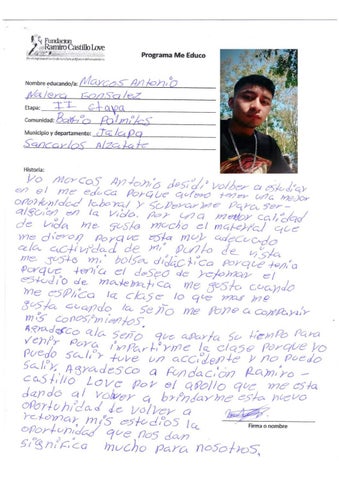 Fundación
Ramiro Castillo Love
Programa Me Educo
Nombre educando/a: Marcos Antonio
Nalera Gonsalez
Etapa: II Etapa
Comunidad: Barrio Palmitos
Municipio y departamento: Jalapa
Sancarlos Alzatate
Historia:
Yo Marcos Antonio desidí volber a estudiar
en el me educa porque quiero tener una mejor
oportunidad laboral y superarme Para ser-
alguien en la vida. Por una mejor calidad
de vida me gusto mucho el material que
me dieron porque esta muy adecuado
a la actividad de mi punto de vista
me gusto mi bolsa didáctica porque tenia
porque tenia el deseo de retomar el
estudio de matematica me gusto cuando
me esplica la clase lo que mas me
gusta cuando la seño me pone a compartir
mis conosimientos.
Agradesco a la seño que aparta su tiempo para
venir para impartirme la clase porque yo
puedo salir tuve un accidente y no puedo
salir, Agradesco a Fundación Ramiro-
castillo Love por el apollo que me esta
dando al volver a brindarme esta nuevo
oportunidad de volver a
retomar mis estudios la
oportunidad que nos dan
significa mucho para nosotros.
Firma o nombre